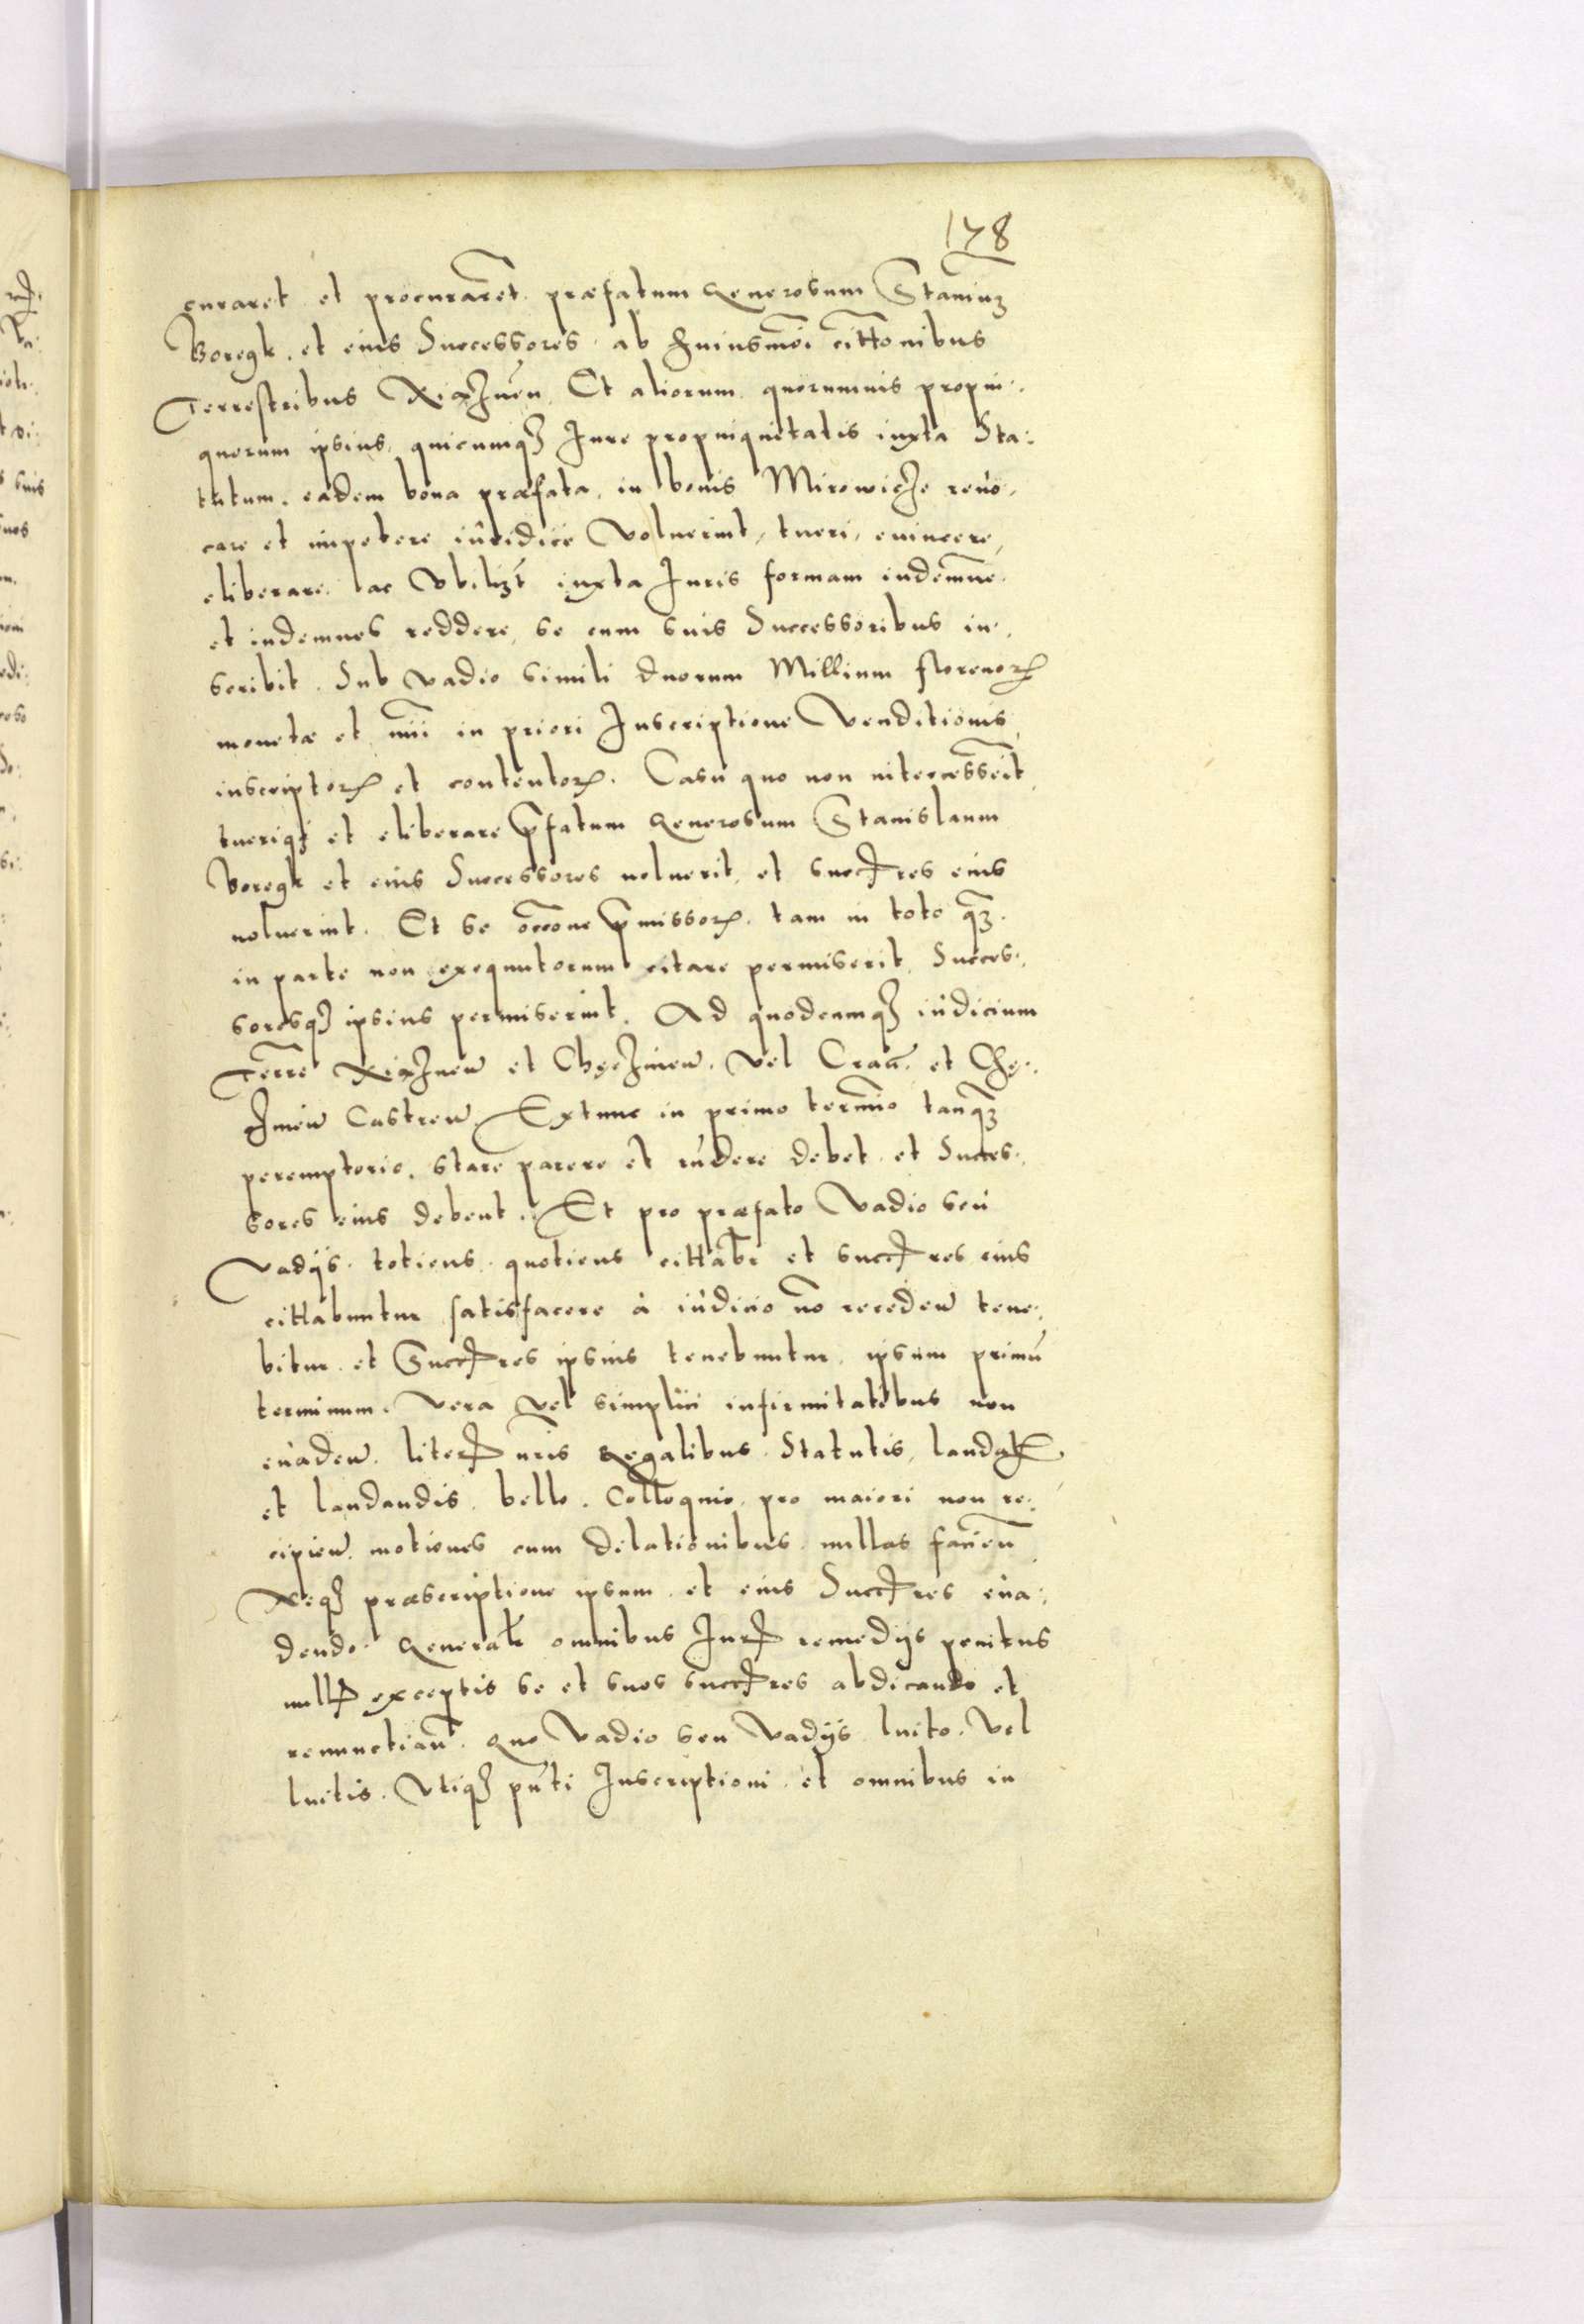 178
curaret et procuraret præfatum Generosum Stanium
Boregk. et eius Successores ab huiusmoi cittonibus
Terrestribus Xiąznen Et aliorum quorumuis propin:
quorum ipsius quicunq3 Jure propinquitatis iuxta Sta:
tutum. eadem bona præfata in bonis Mirowicze reuo.
care et impetere iuridice Voluerint, tueri, euincere,
eliberare. iuxta Juris formam indemne.
et indemnes reddere, se cum suis Successoribus in.
scribit. Sub Vadio simili duorum Millium florenor
monetæ et nūi in priori Inscriptione Venditionis
inscriptor et contentor. Casu quo non intercesserit
tueriq3 et eliberare pfatum Generosum Stanislaum
Boregk et eius Successores noluerit, et succres eius
noluerint. Et se occone pmissor. tam in toto q3.
in parte non exequutorum citare permiserit Succes.
soresq3 ipsius permiserint. Ad quodcumq3 iudicium
Terre Xiąznen et Chęczinen. vel Crac. et Chę.
czinen Castren Extunc in primo termio tanq3
peremptorio. stare parere et rndere debet et Succes.
sores eius debent. Et pro præfato Vadio seu
Vadijs. totiens quotiens cittabr et succres eius
cittabuntur satisfacere à iudicio no receden tene.
bitur et Succres ipsius tenebuntur ipsum primu
terminum. Vera vel simplici infirmitatibus non
euaden. liter nris Regalibus Statutis, laudat
et laudandis. bello. Colloquio. pro maiori non re.
cipien. motiones cum dilationibus nullas facien
Neq3 præscriptione ipsum et eius Succres eua:
dendo. Generalr omnibus Jur remedijs penitus
null exceptis se et suos succres abdicando et
renunctian. Quo Vadio seu Vadijs luito. Vel
luitis. Vtiq3 pnti Inscriptioni et omnibus in